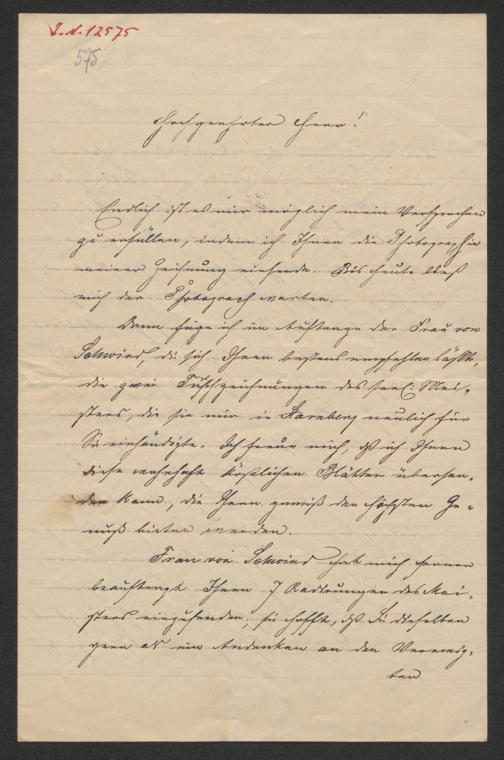 I. N. 12575
575
Hochgeehrter Herr!
Endlich ist es mir möglich mein Versprechen
zu erfüllen, indem ich Ihnen die Photographie
meiner Zeichnung einsende. Bis heute ließ
mich der Photograph warten.
Dann füge ich im Auftrage der Frau von
Schwind, die sich Ihnen bestens empfehlen läßt,
die zwei Tuschzeichnungen des seel: Mei-
sters, die sie mir in Starnberg neulich für
Sie einhändigte. Ich freue mich, daß ich Ihnen
diese wahrhaft köstlichen Blätter übersen-
den kann, die Ihnen gewiß den höchsten Ge-
nuß bieten werden.
Frau von Schwind hat mich ferner
beauftragt Ihnen 7 Radirungen des Mei-
sters einzusenden; sie hofft, daß Sie dieselben
gern als ein Andenken an den Verewig-
ten